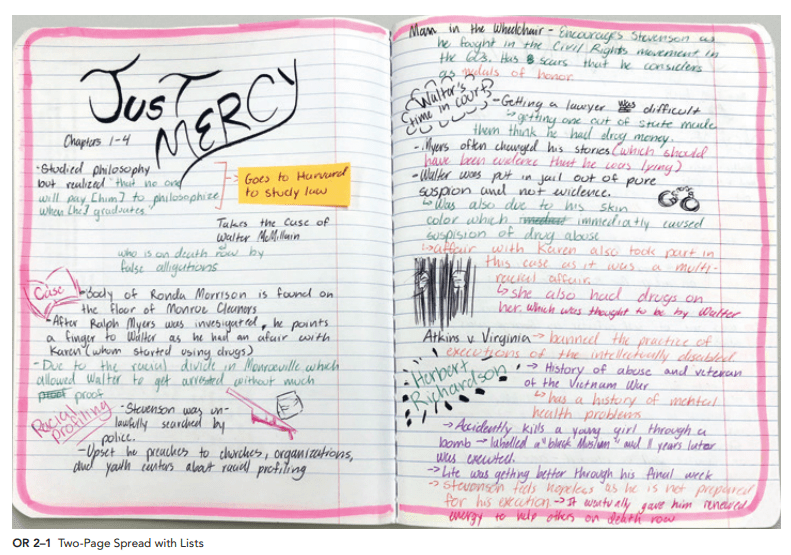 JUST
MERCY
Chapters 1-4
-Studied philosophy
but realized that no one
will pay [him] to philosophize
when [he] graduates
Goes to Harvard
to study law
Takes the case of
Walter McMillain
who is on death row by
false alligations
Case
-Body of Ronda Morrison is found on
the floor of Monroe Cleaners
-After Ralph Myers was investigated, he points
a finger to Walter as he had an afair with
Karen (whom started using drugs)
-Due to the racial divide in Monroeville which
allowed Walter to get arrested without much
proof proof
Racial
profiling
-Stevenson was un-
lawfully searched by
police.
-Upset he preaches to churches, organizations,
and youth centers about racial profiling
Man in the Wheelchair - Encourages Stevenson as
he fought in the Civil Rights movement in
the 60s. Has scars that he considers
as medals of honor.
Walter's
time in court
-Getting a lawyer was difficult
↳getting one out of state made
them think he had drug money.
-Myers often changed his stories (which should
have been evidence that he was lying)
-Walter was put in jail out of pure
suspion and not evidence.
↳Was also due to his skin
color which immediatly caused
suspision of drug abuse
↳affair with Karen also took part in
this case as it was a multi-
racial affair.
↳she also had drugs on
her which was thought to be by Walter
Atkins v. Virginia → banned the practice of
executions of the intellectually disabled
Herbert
Richardson
→ History of abuse and veteran
of the Vietnam War
↳has a history of mental
health problems
→Accidently kills a young girl through a
bomb → labelled a "black Muslim" and 11 years later
was executed.
→Life was getting better through his final week
→Stevenson feels hopeless as he is not prepared
for his execution → It eventually gave him renewed
energy to help others on death row
OR 2–1 Two-Page Spread with Lists